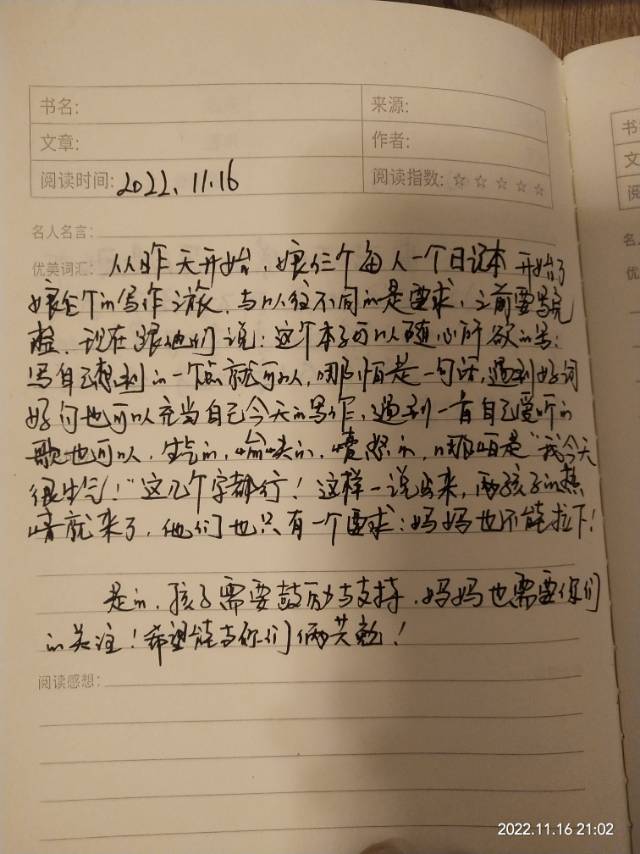 书名:
来源:
文章:
作者:
阅读时间: 2022.11.16
阅读指数: ☆☆☆☆☆
名人名言:
优美词汇: 从昨天开始,娘仨个每人一个日记本开始了
娘仨个的写作之旅,与以往不同的是要求,之前要写完
整,现在跟他们说:这个本子可以随心所欲的写:
写自己想到的一个点就可以,哪怕是一句话,遇到好词
好句也可以充当自己今天的写作,遇到一首自己爱听的
歌也可以,生气的,愉快的,的,哪怕是“我今天
很生气!”这几个字都行!这样一说出来,两孩子的热
情就来了,他们也只有一个要求:妈妈也不能拉下!
是的,孩子需要鼓励与支持,妈妈也需要你们
的关注!希望能与你们俩共勉!
阅读感想:
书
文
阅
名
优
2022.11.16 21:02